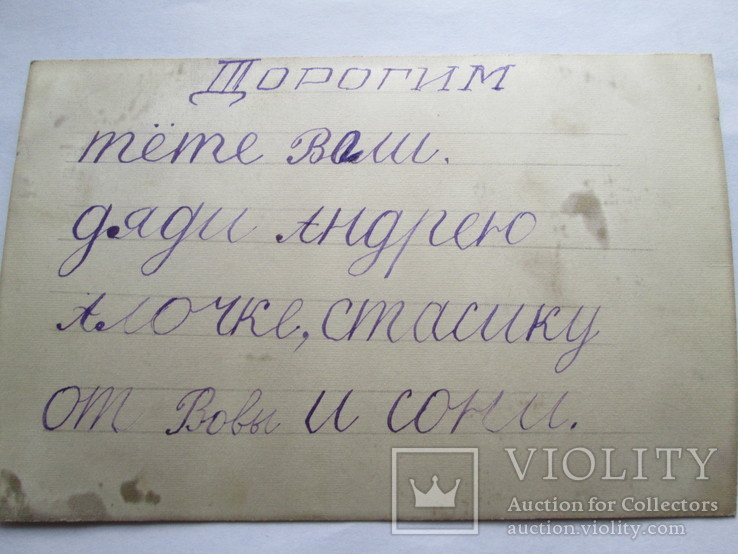 Дорогим
тёте Вали.
дяди Андрею
Алочке, стасику
от Вовы и сони.
VIOLITY
Auction for Collectors
auction.violity.com